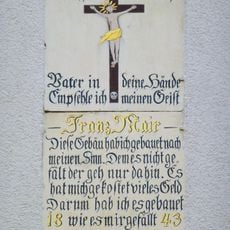 Vater in deine Hände
Empfehle ich meinen Geist
Franz Mair
Diese Gebäu hab ich gebaut nach
meinen Sinn. Dem es nicht ge-
fält der geb nur da hin. Es
hat mich gekostet vieles Geld
Darum hab ich es gebauet
18 wie es mir gefällt 43